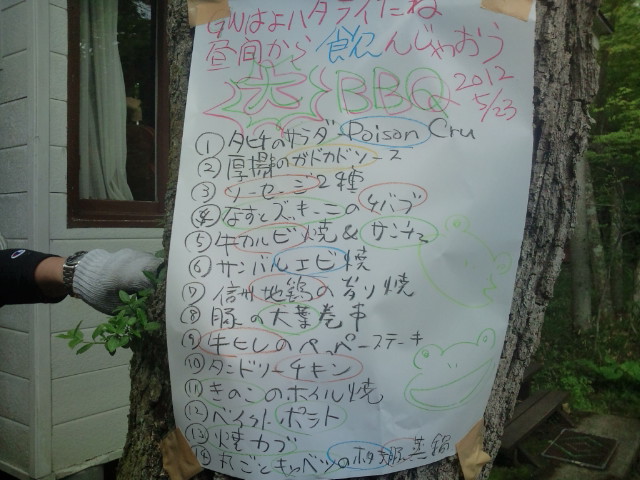 GWはよハタライたね
昼間から飲んじゃおう
BBQ 2012 5/23
① タヒチのサラダ Poison Cru
② 厚揚のガドガドソース
③ ソーセージ2種
④ なすとズッキーニのケバブ
⑤ 牛カルビ焼&サンチュ
⑥ サンバルエビ焼
⑦ 信州地鶏の岩り焼
⑧ 豚の大葉巻串
⑨ 牛ヒレのペッパーステーキ
⑩ タンドリーチキン
⑪ きのこのホイル焼
⑫ ベイクドポテト
⑬ 焼カブ
⑭ 丸ごとキャベツの蒸鍋